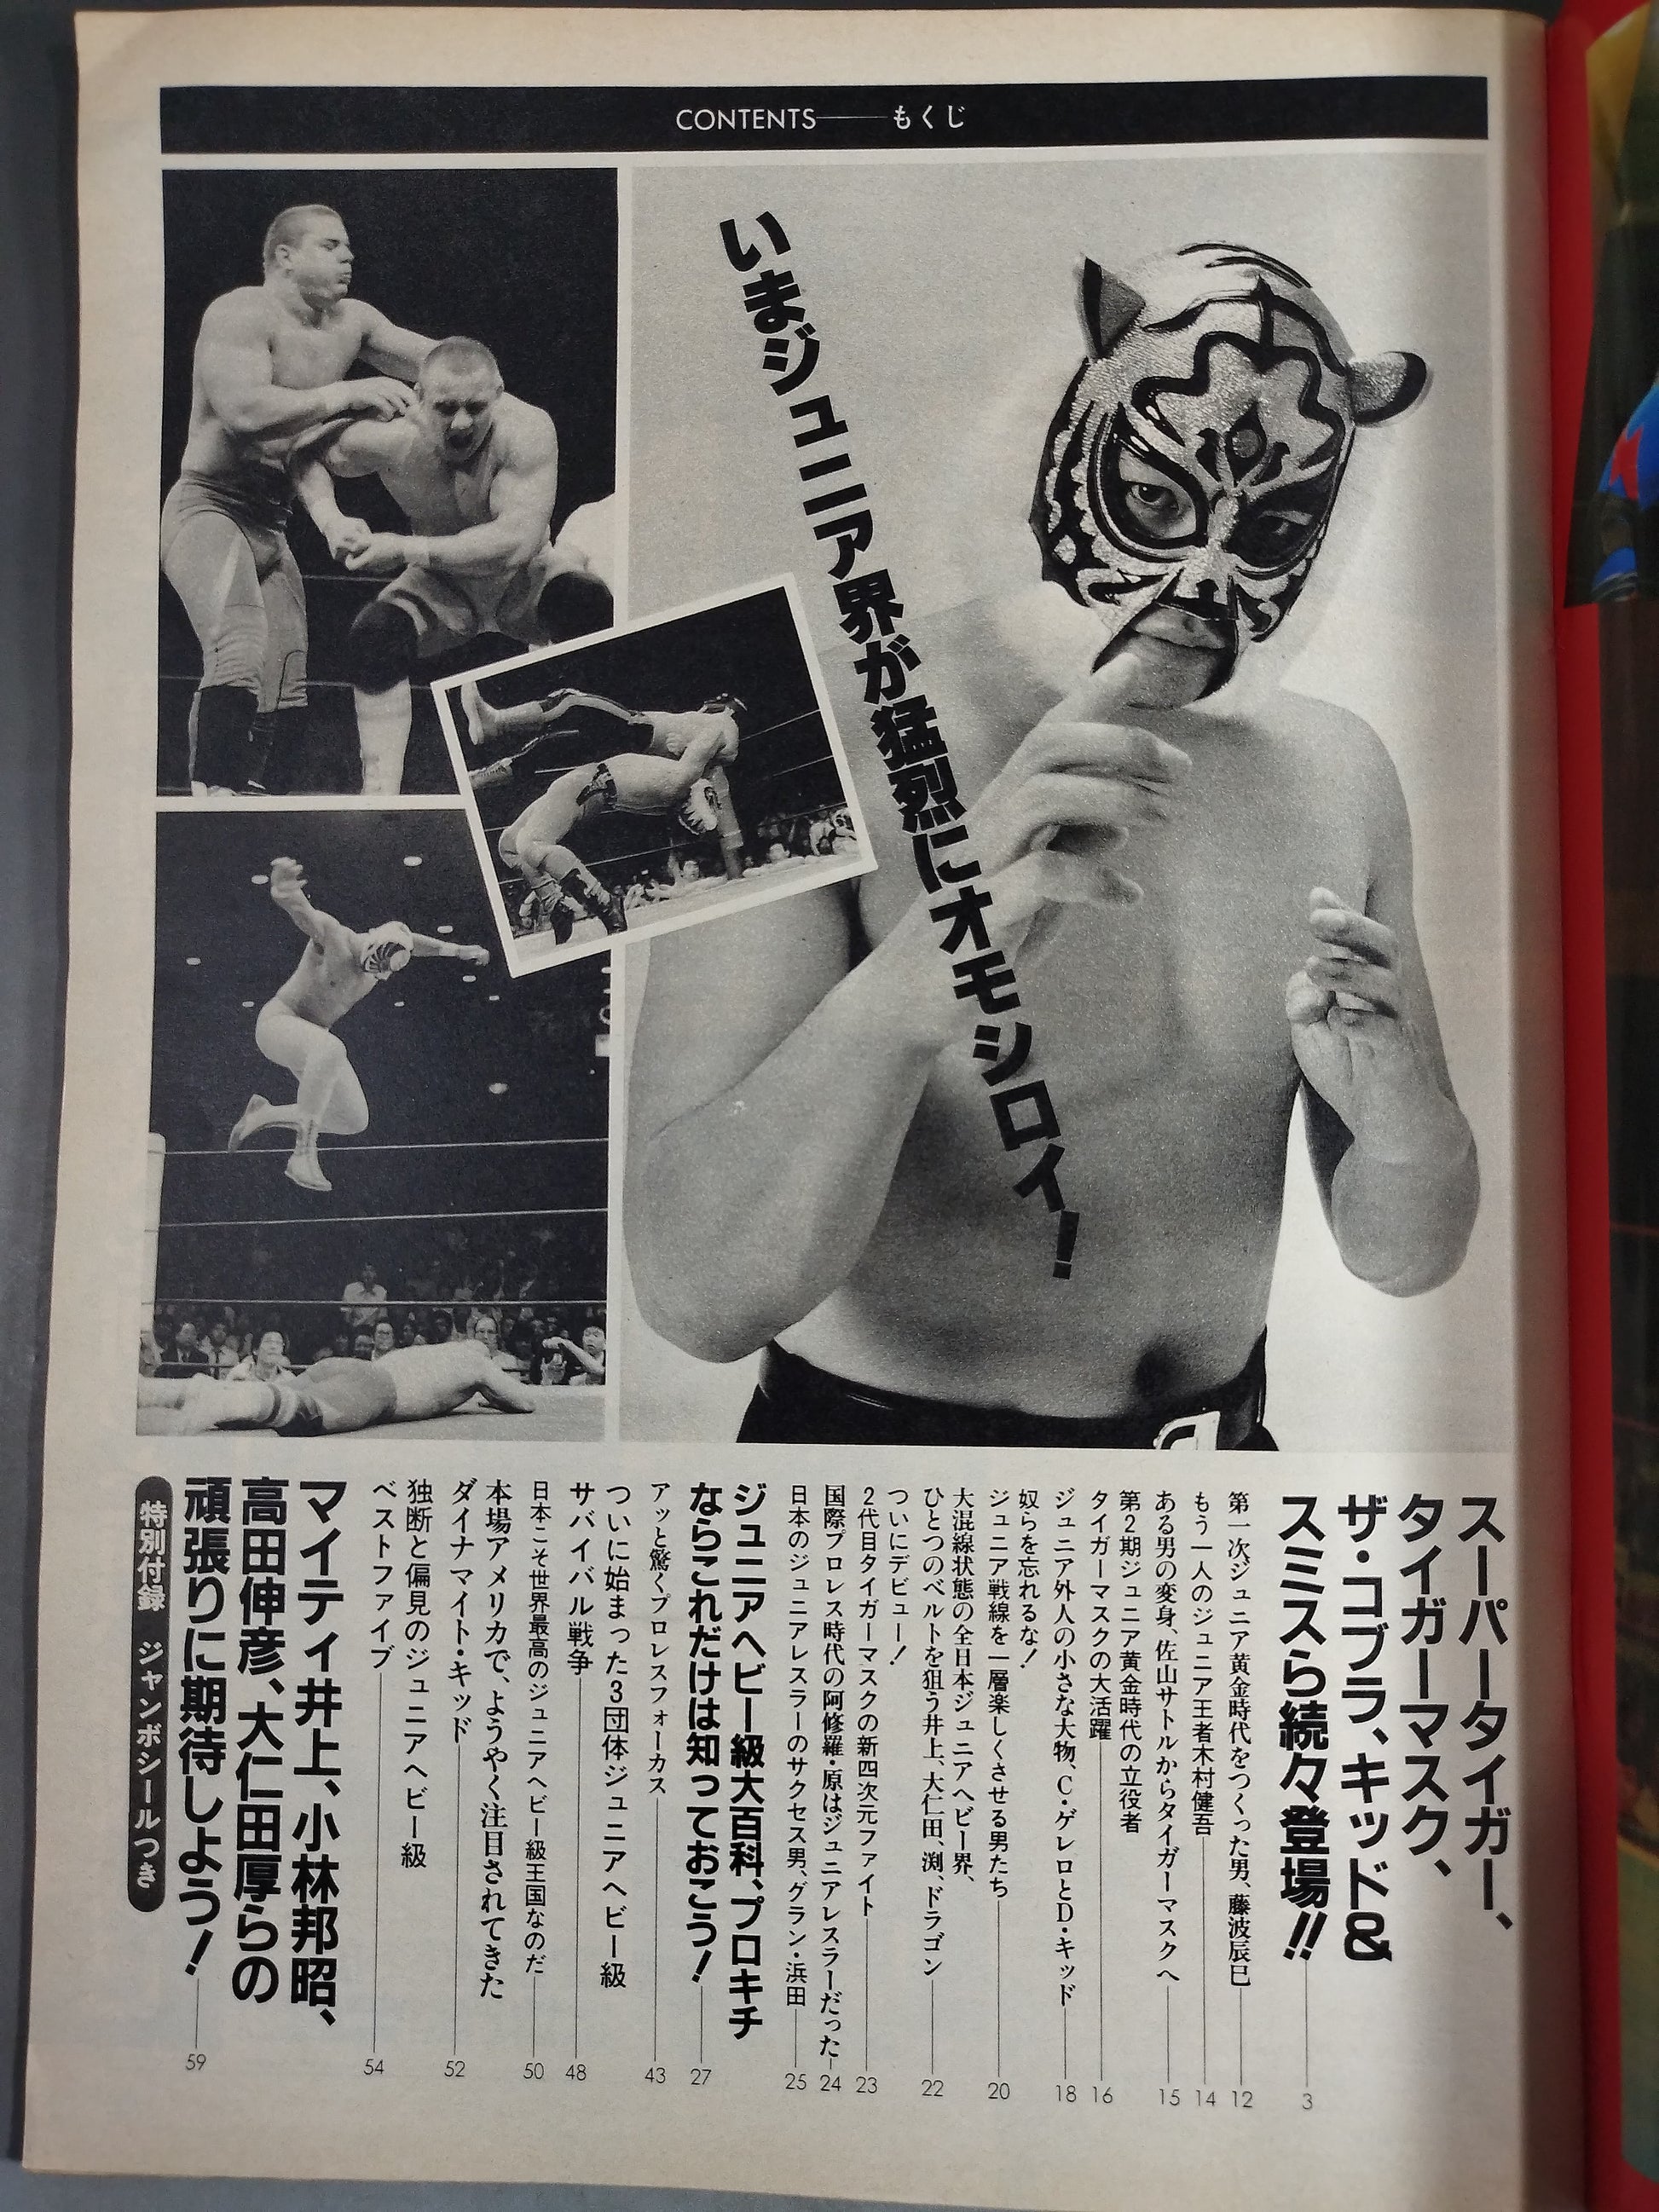 CONTENTS──もくじ
いまジュニア界が猛烈にオモシロイ!
スーパータイガー、
タイガーマスク、
ザ・コブラ、キッド&
スミスら続々登場!! 3
第一次ジュニア黄金時代をつくった男、藤波辰巳 12
もう一人のジュニア王者木村健吾 14
ある男の変身、佐山サトルからタイガーマスクへ 15
第2期ジュニア黄金時代の立役者
タイガーマスクの大活躍 16
ジュニア外人の小さな大物、C・ゲレロとD・キッド 18
奴らを忘れるな!
ジュニア戦線を一層楽しくさせる男たち 20
大混線状態の全日本ジュニアヘビー界、
ひとつのベルトを狙う井上、大仁田、渕、ドラゴン 22
ついにデビュー!
2代目タイガーマスクの新四次元ファイト 23
国際プロレス時代の阿修羅・原はジュニアレスラーだった 24
日本のジュニアレスラーのサクセス男、グラン・浜田 25
ジュニアヘビー級大百科、プロキチ
ならこれだけは知っておこう! 27
アッと驚くプロレスフォーカス 43
ついに始まった3団体ジュニアヘビー級
サバイバル戦争 48
日本こそ世界最高のジュニアヘビー級王国なのだ 50
本場アメリカで、ようやく注目されてきた
ダイナマイト・キッド 52
独断と偏見のジュニアヘビー級
ベストファイブ 54
マイティ井上、小林邦昭、
高田伸彦、大仁田厚らの
頑張りに期待しよう! 59
特別付録 ジャンボシールつき